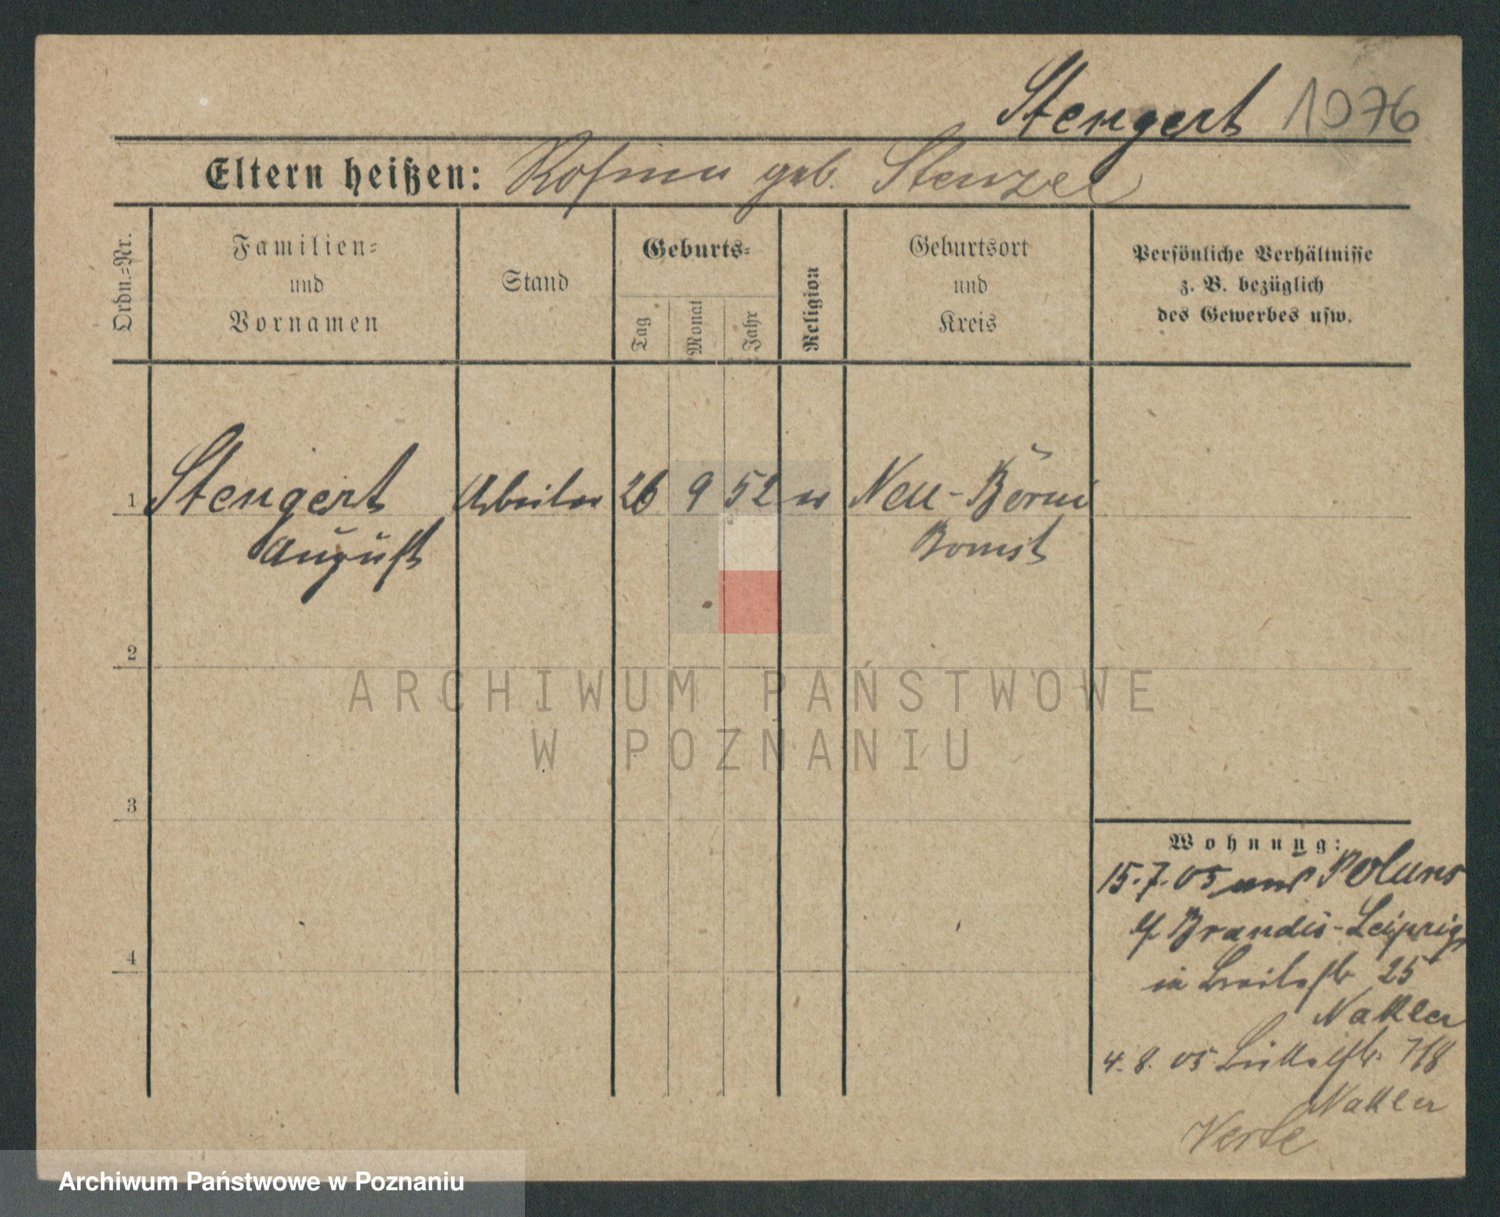 Stengert 1076
Eltern heißen: Rosina geb. Stenzel
Ordn.=Nr.
Familien=
und
Vornamen
Stand
Geburts=
Tag
Monat
Jahr
Religion
Geburtsort
und
Kreis
Persönliche Verhältnisse
z. B. bezüglich
des Gewerbes usw.
1 Stengert Arbeiter 26 9 52 Neu-
August Bomst
2
ARCHIWUM PAŃSTWOWE
W POZNANIU
3
Wohnung:
15.7.05 aus
Brandis-Leipzig
4
in Breitestr 25
4. 8. 05
Archiwum Państwowe w Poznaniu